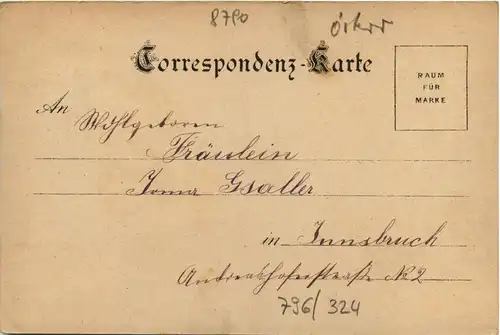 8790
Correspondenz-Karte
RAUM
FÜR
MARKE
An
Wohlgeboren
Fräulein
Irma Gsaller
in Innsbruck
Andreashoferstraße No 2
796/324